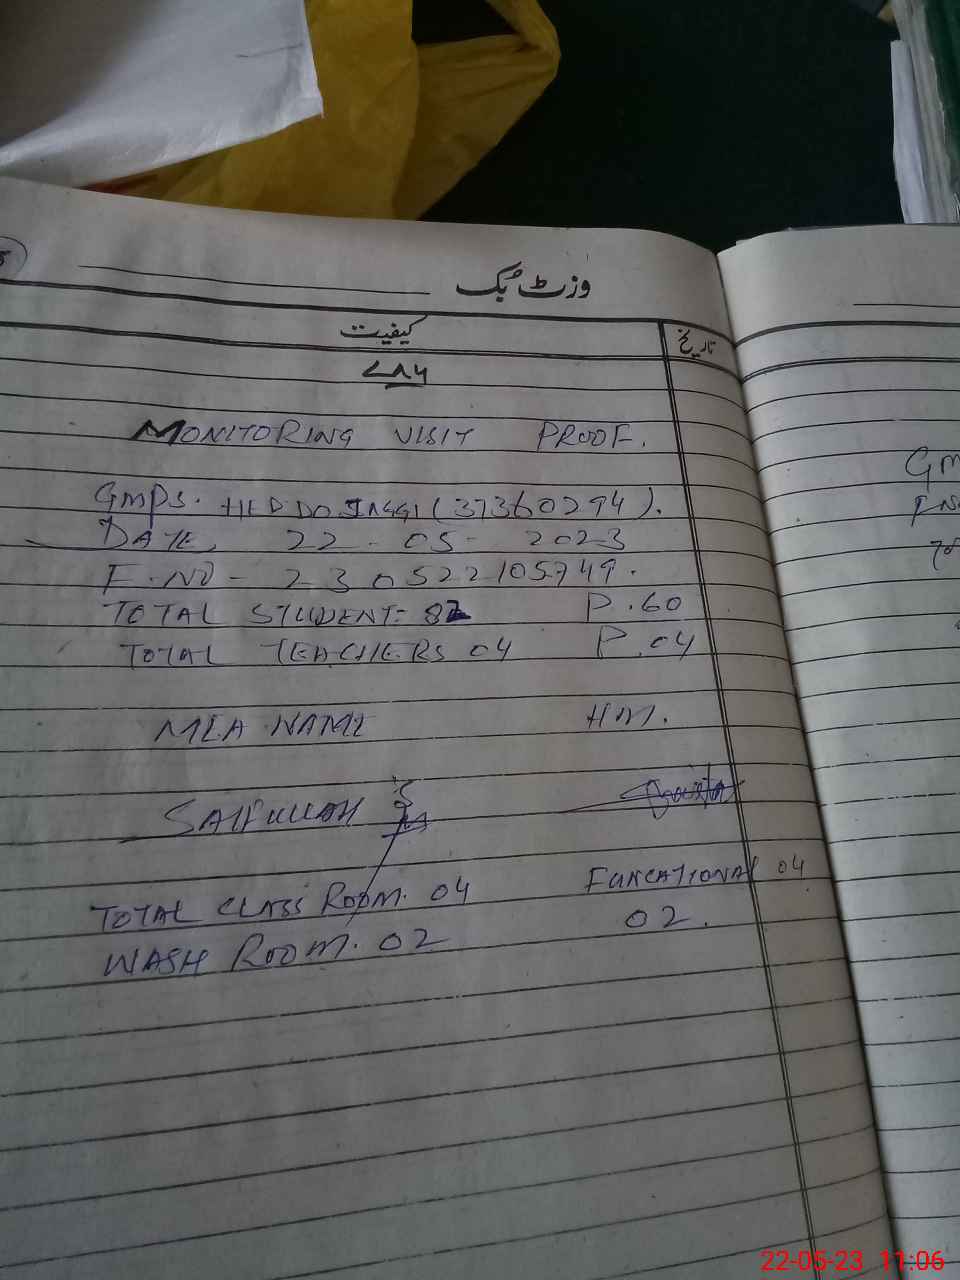 وزٹ بُک
کیفیت
تاریخ
۷۸۶
MONITORING VISIT PROOF.
GMPS. (37360294).
DATE, 22-05-2023
F.NO - 230522105749.
TOTAL STUDENT: 82 P.60
TOTAL TEACHERS 04 P.04
MEA NAME HM.
SAIFULLAH
TOTAL CLASS ROOM. 04 FUNCATIONAL 04
WASH ROOM. 02 02.
GM
22-05-23 11:06